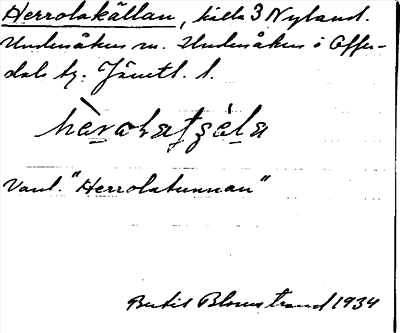 Herrolakällan, källa 3 Nyland.
Undersåker sn. Undersåkers o Offer-
dals tg. Jämtl. l.
hèrolatɕèla
Vanl. "Herrolatunnan"
Bertil Blomstrand 1934